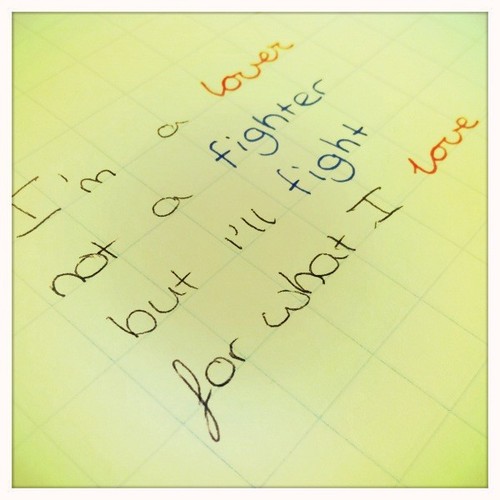 I'm a lover
not a fighter
but I'll fight
for what I love